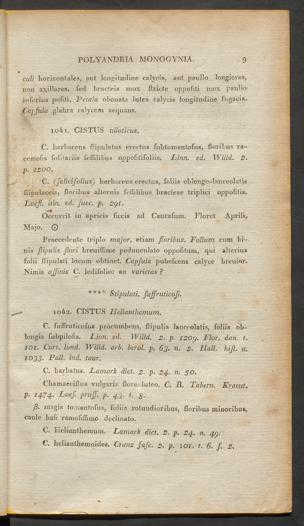 POLYANDRIA MONOGYNIA. 9
culi horizontales, aut longitudine calycis, aut paullo longiores,
non axillares, sed bracteis mox stricte oppositi mox paullo
inferius positi. Petala obovata lutea calycis longitudine fugacia.
Capsula glabra calycem aequans.
1041. CISTUS niloticus.
C. herbaceus stipulatus erectus subtomentosus, floribus ra-
cemosis solitariis sessilibus oppositifoliis. Linn. ed. Willd. 2.
p. 1200.
C. (salicifolius) herbaceus erectus, foliis oblongo-lanceolatis
stipulaceis, floribus alternis sessilibus bracteae triplici oppositis.
Loefl. itin. ed. suec. p. 291.
Occurrit in apricis siccis ad Caucasum. Floret Aprili,
Majo. ☉
Praecedente triplo major, etiam floribus. Folium cum bi-
nis stipulis flori brevissime pedunculato oppositum, qui alterius
folii stipulati locum obtinet. Capsula pubescens calyce brevior.
Nimis affinis C. ledifolio: an varietas?
**** Stipulati, suffruticosi.
1042. CISTUS Helianthemum.
C. suffruticosus procumbens, stipulis lanceolatis, foliis ob-
longis subpilosis. Linn. ed. Willd. 2. p. 1209. Flor. dan. t.
101. Curt. lond. Willd. arb. berol. p. 63. n. 2. Hall. hist. n.
1033. Pall. ind. taur.
C. barbatus. Lamark dict. 2. p. 24. n. 50.
Chamaecistus vulgaris flore luteo. C. B. Tabern. Kraeut.
p. 1474. Loes. pruss. p. 43. t. 8.
β. magis tomentosus, foliis rotundioribus, floribus minoribus,
caule basi ramosissimo declinato.
C. Helianthemum. Lamark dict. 2. p. 24. n. 49.
C. helianthemoides. Cranz fasc. 2. p. 101. t. 6. f. 2.